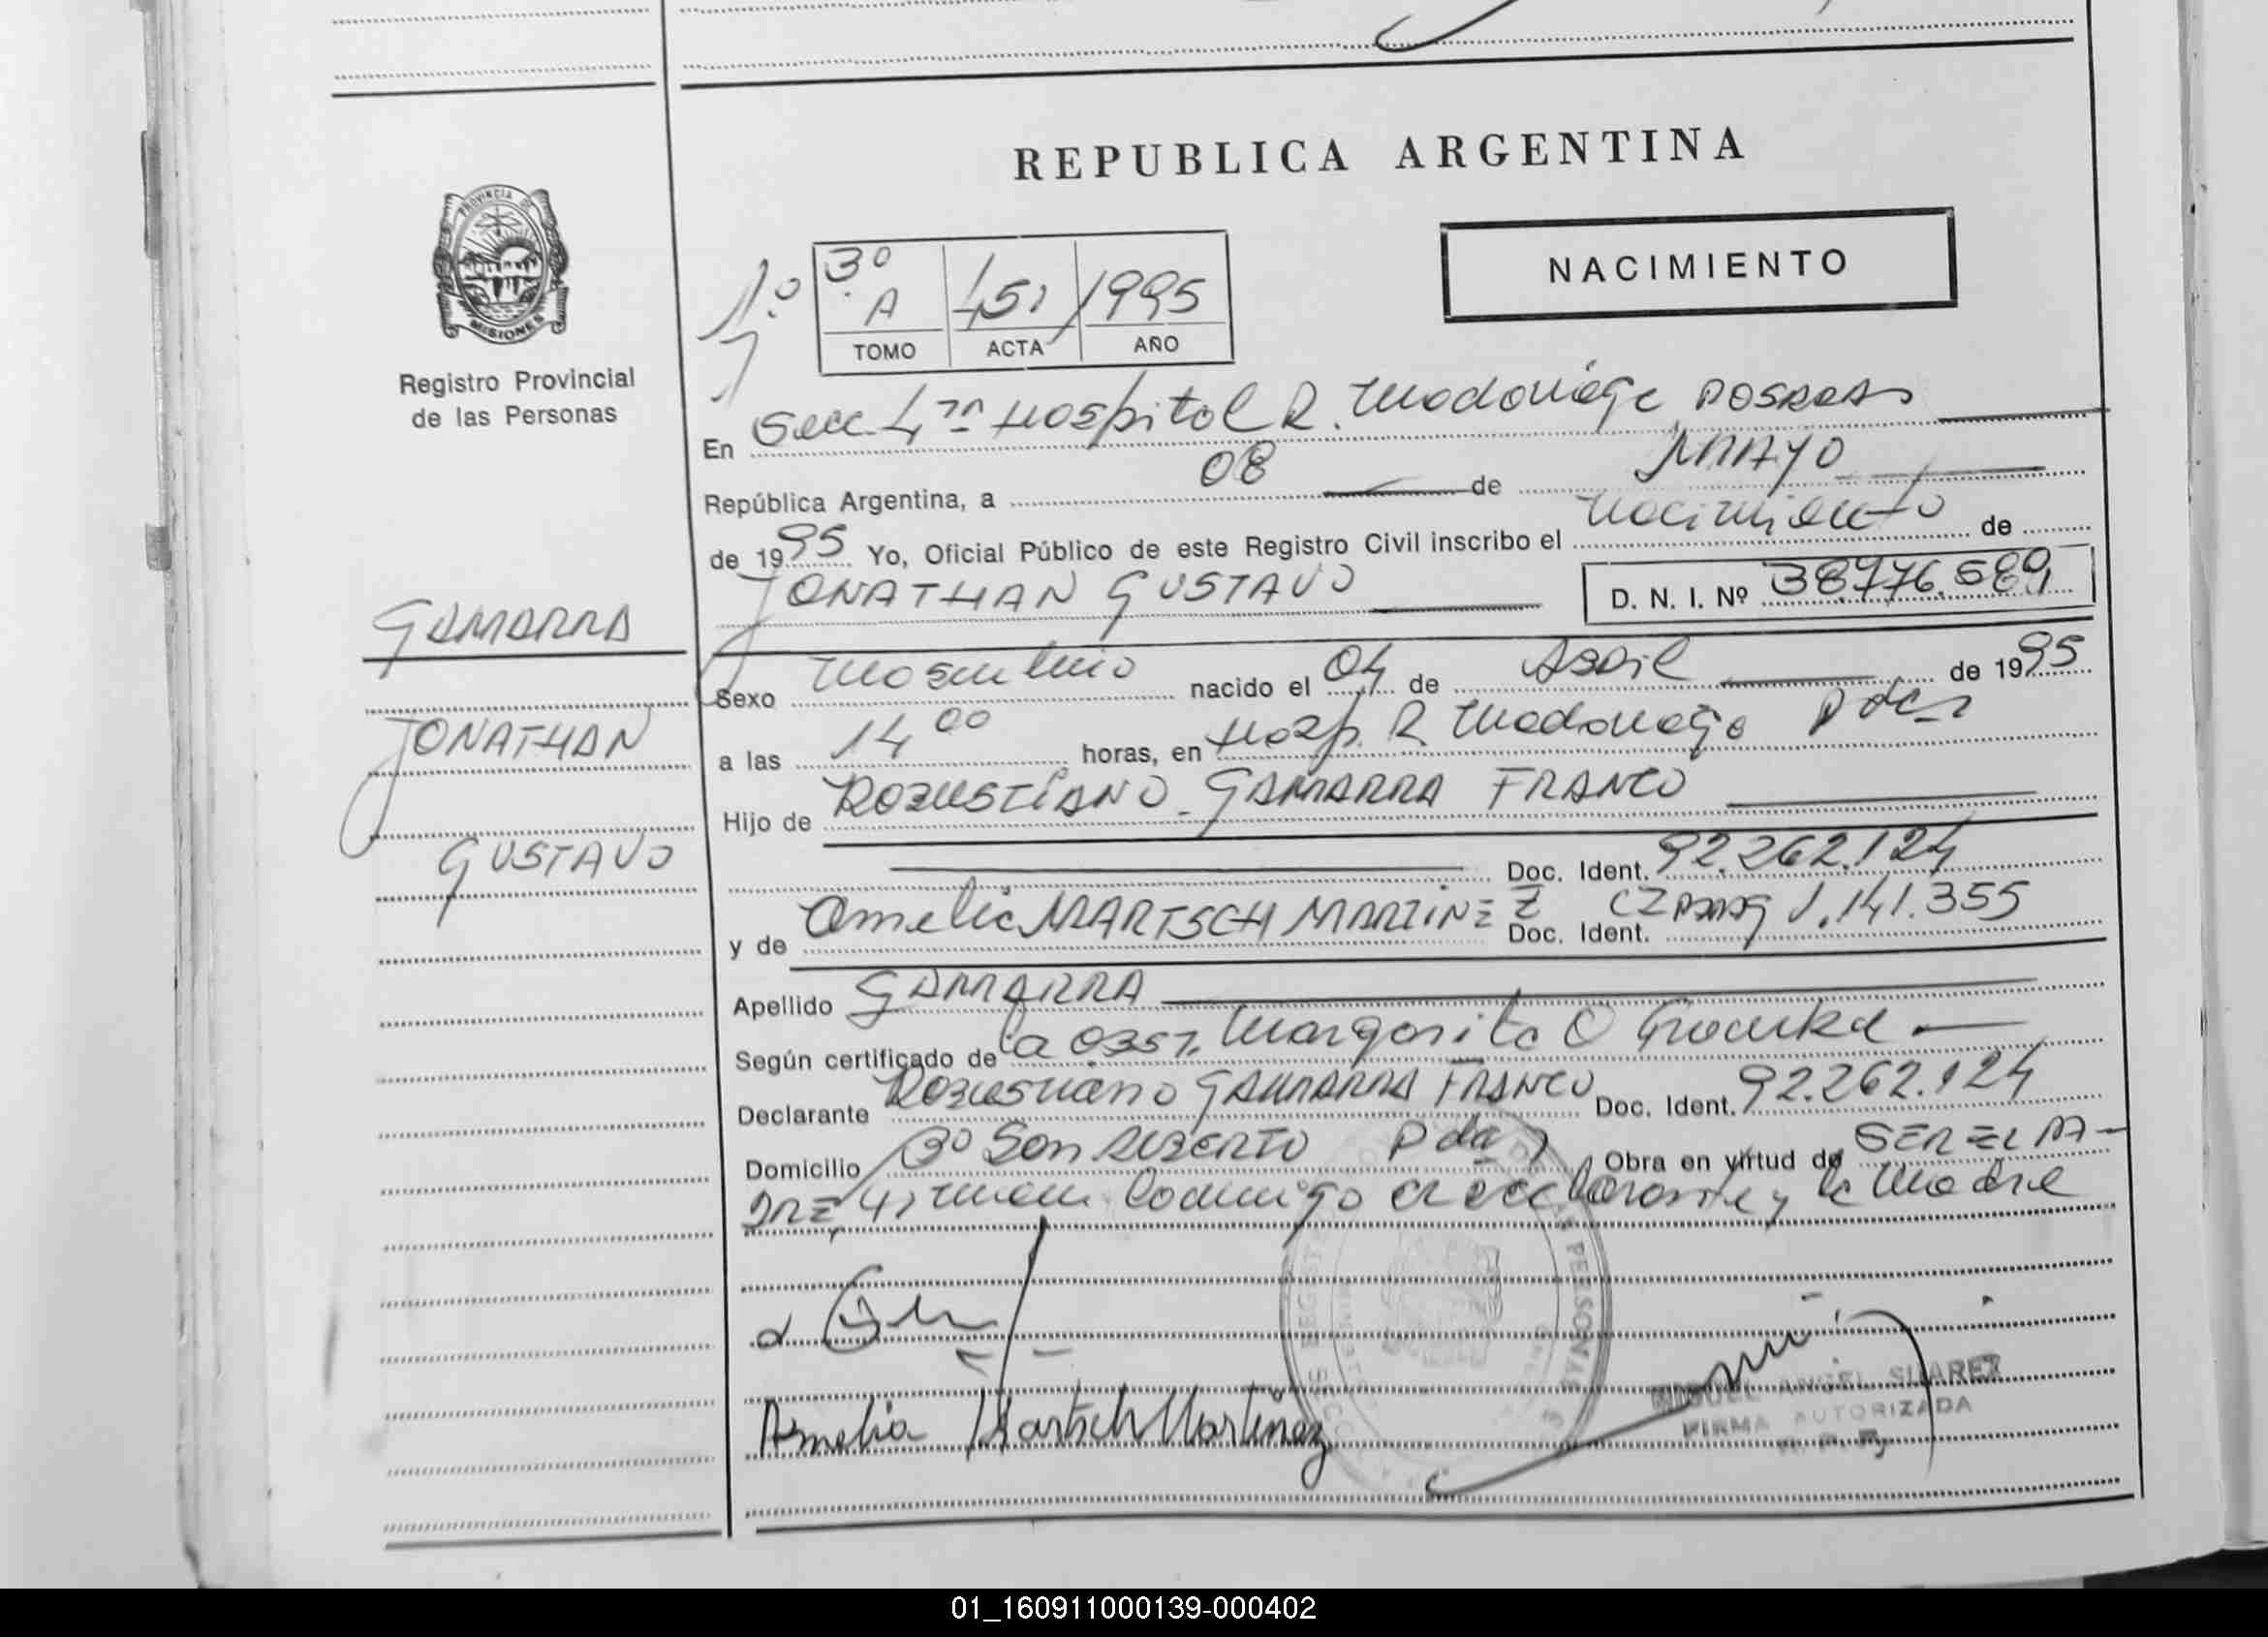 REPUBLICA ARGENTINA
PROVINCIA DE
MISIONES
Registro Provincial
de las Personas
NACIMIENTO
3º
A 451 1995
TOMO ACTA AÑO
En Secc. 4ta Hospital R. Madariaga POSADAS
República Argentina, a 08 de MAYO
de 1995 Yo, Oficial Público de este Registro Civil inscribo el nacimiento de
JONATHAN GUSTAVO D. N. I. Nº 38.776.589
GAMARRA
JONATHAN
GUSTAVO
Sexo masculino nacido el 04 de Abril de 1995
a las 14 00 horas, en Hosp. R. Madariaga Pdas
Hijo de ROBUSTIANO GAMARRA FRANCO
Doc. Ident. 92.262.124
y de Amelia MARTSCH MARTINEZ Doc. Ident. 1.141.355
Apellido GAMARRA
Según certificado de la Obst. Margarita O
Declarante Robustiano GAMARRA FRANCO Doc. Ident. 92.262.124
Domicilio Bº San ALBERTO Pdas Obra en virtud de SER EL PA-
DRE, firman conmigo el declarante y la Madre
Amelia Martsch Martinez
MIGUEL ANGEL SUAREZ
FIRMA AUTORIZADA
R. P. P.
01_160911000139-000402